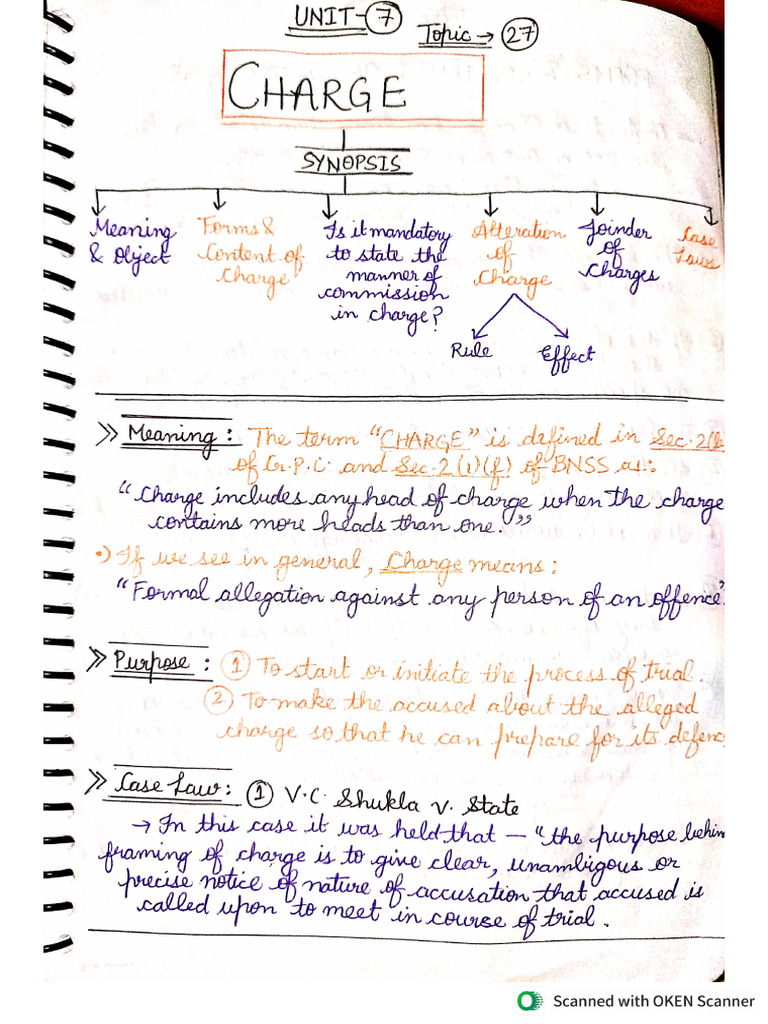 UNIT-7
Topic → 27
CHARGE
SYNOPSIS
Meaning & Object
Forms & Content of Charge
Is it mandatory to state the manner of commission in charge?
Alteration of Charge
Joinder of Charges
Case Laws
Rule
Effect
>> Meaning: The term "CHARGE" is defined in Sec. 2(b
of Cr.P.C. and Sec. 2(1)(f) of BNSS as:
"Charge includes any head of charge when the charge
contains more heads than one."
•) If we see in general, Charge means:
"Formal allegation against any person of an offence"
>> Purpose: ① To start or initiate the process of trial.
② To make the accused about the alleged
charge so that he can prepare for its defenc
>> Case Law: ① V.C. Shukla v. State
→ In this case it was held that — "the purpose behin
framing of charge is to give clear, unambigous or
precise notice of nature of accusation that accused is
called upon to meet in course of trial.
Scanned with OKEN Scanner